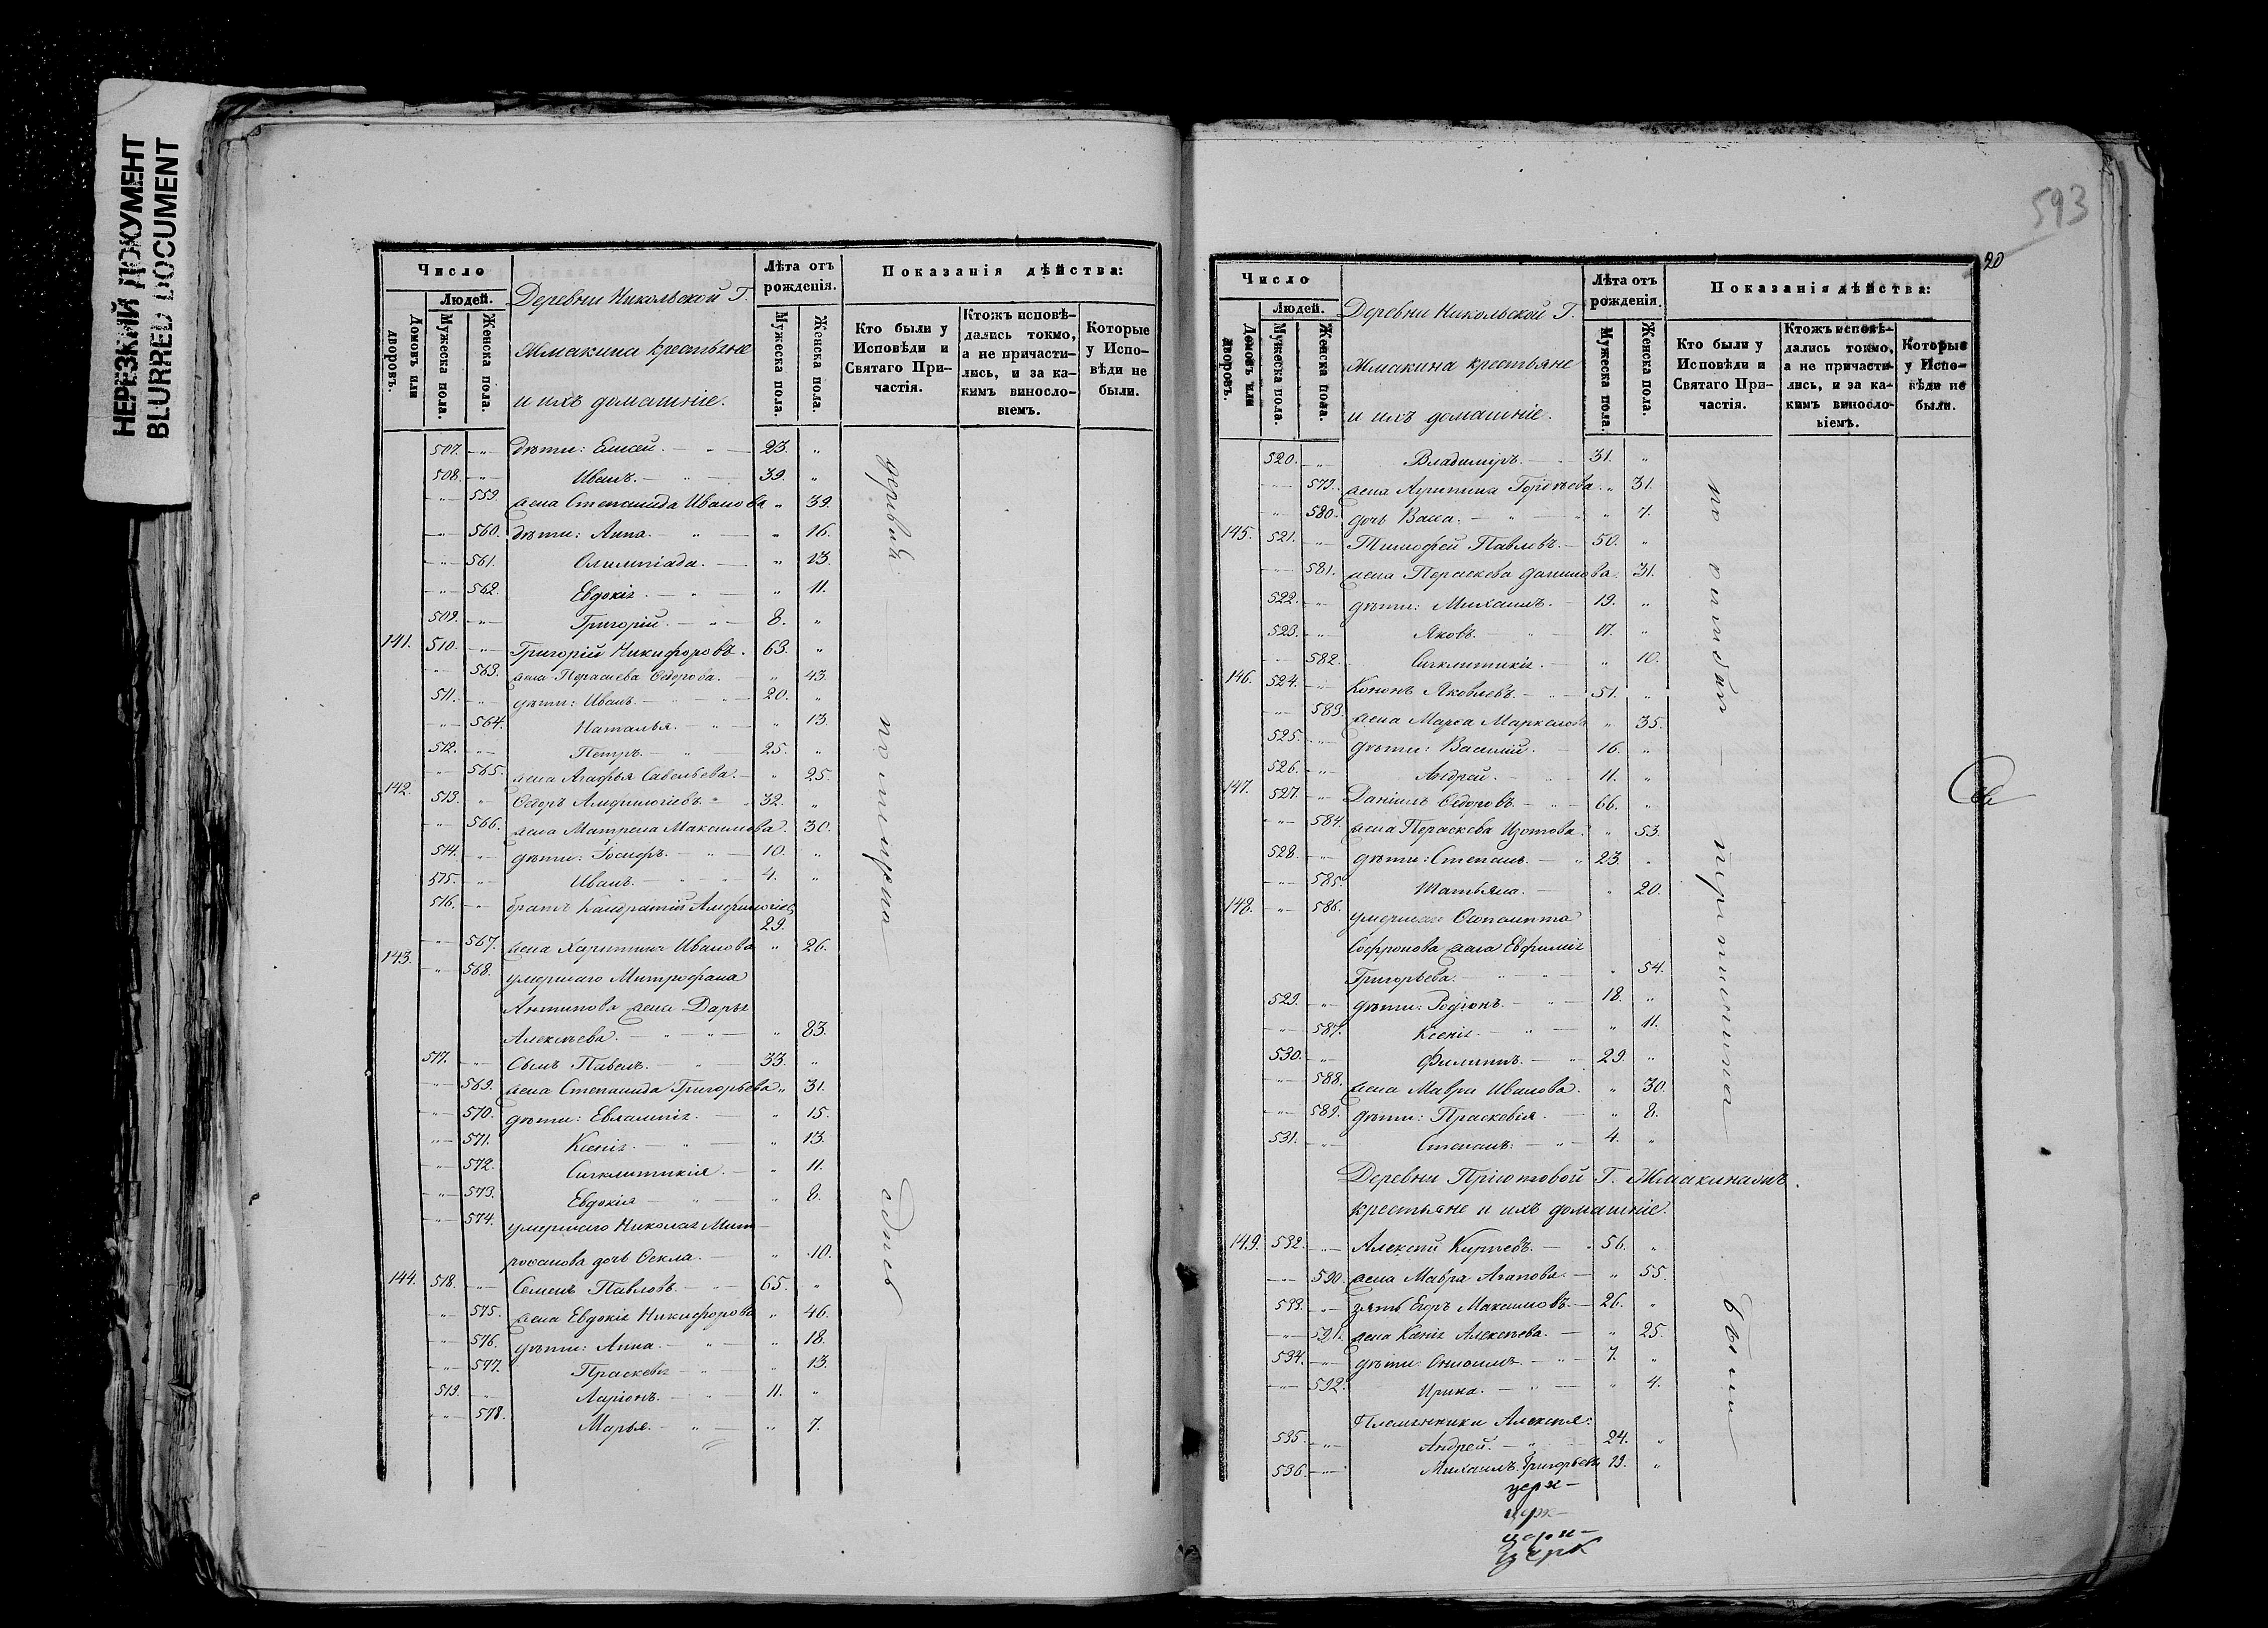 НЕРЕЗКИЙ ДОКУМЕНТ
BLURRED DOCUMENT
Число
Людей.
Домовъ или дворовъ.
Мужеска пола.
Женска пола.
Деревни Никольской Г.
Жмакина крестьяне
и ихъ домашніе.
Лѣта отъ рожденія.
Мужеска пола.
Женска пола.
Показанія дѣйства:
Кто были у Исповѣди и Святаго Причастія.
Ктожъ исповѣдались токмо, а не причастились, и за какимъ винословіемъ.
Которые у Исповѣди не были.
507. -„- дѣти: Елисей. - „ - 23. „
508. -„- Иванъ. - „ - 39. „
-„- 559. жена Степанида Иванова „ 39.
-„- 560. дѣти: Анна. - „ - „ 16.
-„- 561. Олимпіада. - „ 13.
-„- 562. Евдокія. - „ - „ 11.
509. -„- Григорій. - „ - 8. „
141. 510. -„- Григорій Никифоровъ. 63. „
-„- 563. жена Параскева Ѳедорова. „ 43.
511. -„- дѣти: Иванъ. - „ - 20. „
-„- 564. Наталья. - „ - „ 13.
512. -„- Петръ. - „ - 25. „
-„- 565. жена Агафья Савельева. - „ 25.
142. 513. „ Ѳедоръ Амфилогіевъ. - 32. „
-„- 566. жена Матрена Максимова. 30.
514. -„- дѣти: Іосифъ. - „ - 10. „
515. -„- Иванъ. - „ - 4. „
516. -„- братъ Кондратій Амфилогіевъ
29.
-„- 567. жена Харитина Иванова „ 26.
143. -„- 568. умершаго Митрофана
Антипова жена Дарья
Алексѣева. - „ - „ 83.
517. -„- Сынъ Павелъ. - „ - 33. „
-„- 569. жена Степанида Григорьева „ 31.
-„- 570. дѣти: Евлампія. - „ 15.
-„- 571. Ксенія. - „ - „ 13.
-„- 572. Синклитикія. - „ 11.
-„- 573. Евдокія - „ - „ 8.
-„- 574. умершаго Николая Мит-
рофанова дочь Ѳекла. - „ 10.
144. 518. -„- Семенъ Павловъ. - „ - 65. „
-„- 575. жена Евдокія Никифорова „ 46.
-„- 576. дѣти: Анна. - „ - „ 18.
-„- 577. Праскевья - „ „ 13.
519. -„- Ларіонъ. - „ - 11. „
-„- 578. Марья. - „ - „ 7.
первый
по тринадц
593
20
Число
Людей.
Домовъ или дворовъ.
Мужеска пола.
Женска пола.
Деревни Никольской Г.
Жмакина крестьяне
и ихъ домашніе.
Лѣта отъ рожденія.
Мужеска пола.
Женска пола.
Показанія дѣйства:
Кто были у Исповѣди и Святаго Причастія.
Ктожъ исповѣдались токмо, а не причастились, и за какимъ винословіемъ.
Которые у Исповѣди не были.
520. -„- Владиміръ. - 31. „
-„- 579. жена Агрипина Гордѣева. „ 31.
-„- 580. дочь Васса. - „ - „ 7.
145. 521. -„- Тимофей Павловъ. - 50. „
-„- 581. жена Пораскева Данилова. 31.
522. -„- дѣти: Михаилъ. - 19. „
523. -„- Яковъ. - „ - 17. „
-„- 582. Синклитикія. - „ 10.
146. 524. -„- Кононъ Яковлевъ. - „ - 51. „
-„- 583. жена Марѳа Маркелова „ 35.
525. -„- дѣти: Василій. - 16. „
526. -„- Андрей. - „ 11. „
147. 527. -„- Даніилъ Ѳедоровъ. - „ - 66. „
-„- 584. жена Пораскева Изотова. „ 53.
528. -„- дѣти: Степанъ. - „ 23. „
-„- 585. Татьяна. - „ 20.
148. -„- 586. умершаго
Софронова жена Евфимія
Григорьева. - „ - „ 54.
529. -„- дѣти: Родіонъ. - „ - 18. „
-„- 587. Ксенія. - „ - „ 11.
530. -„- Филиппъ. - „ 29 „
-„- 588. жена Мавра Иванова. „ 30.
-„- 589. дѣти: Прасковія. - „ 8.
531. -„- Степанъ: - „ - 4. „
Деревни Пріютовой Г. Жмакиныхъ.
крестьяне и ихъ домашніе.
149. 532. -„- Алексѣй Кирѣевъ. - 56. „
-„- 590. жена Мавра Агапова. - „ 55.
533. -„- зять Егоръ Максимовъ. - 26. „
-„- 591. жена Ксенія Алексѣева. - „ 25.
534. -„- дѣти: - „ - 7. „
-„- 592. Ирина. - „ - „ 4.
Племянники Алексѣя:
535. -„- Андрей. - „ - 24. „
536. -„- Михаилъ Григорьевы 19. „
были
церк-
церк-
церк-
церк